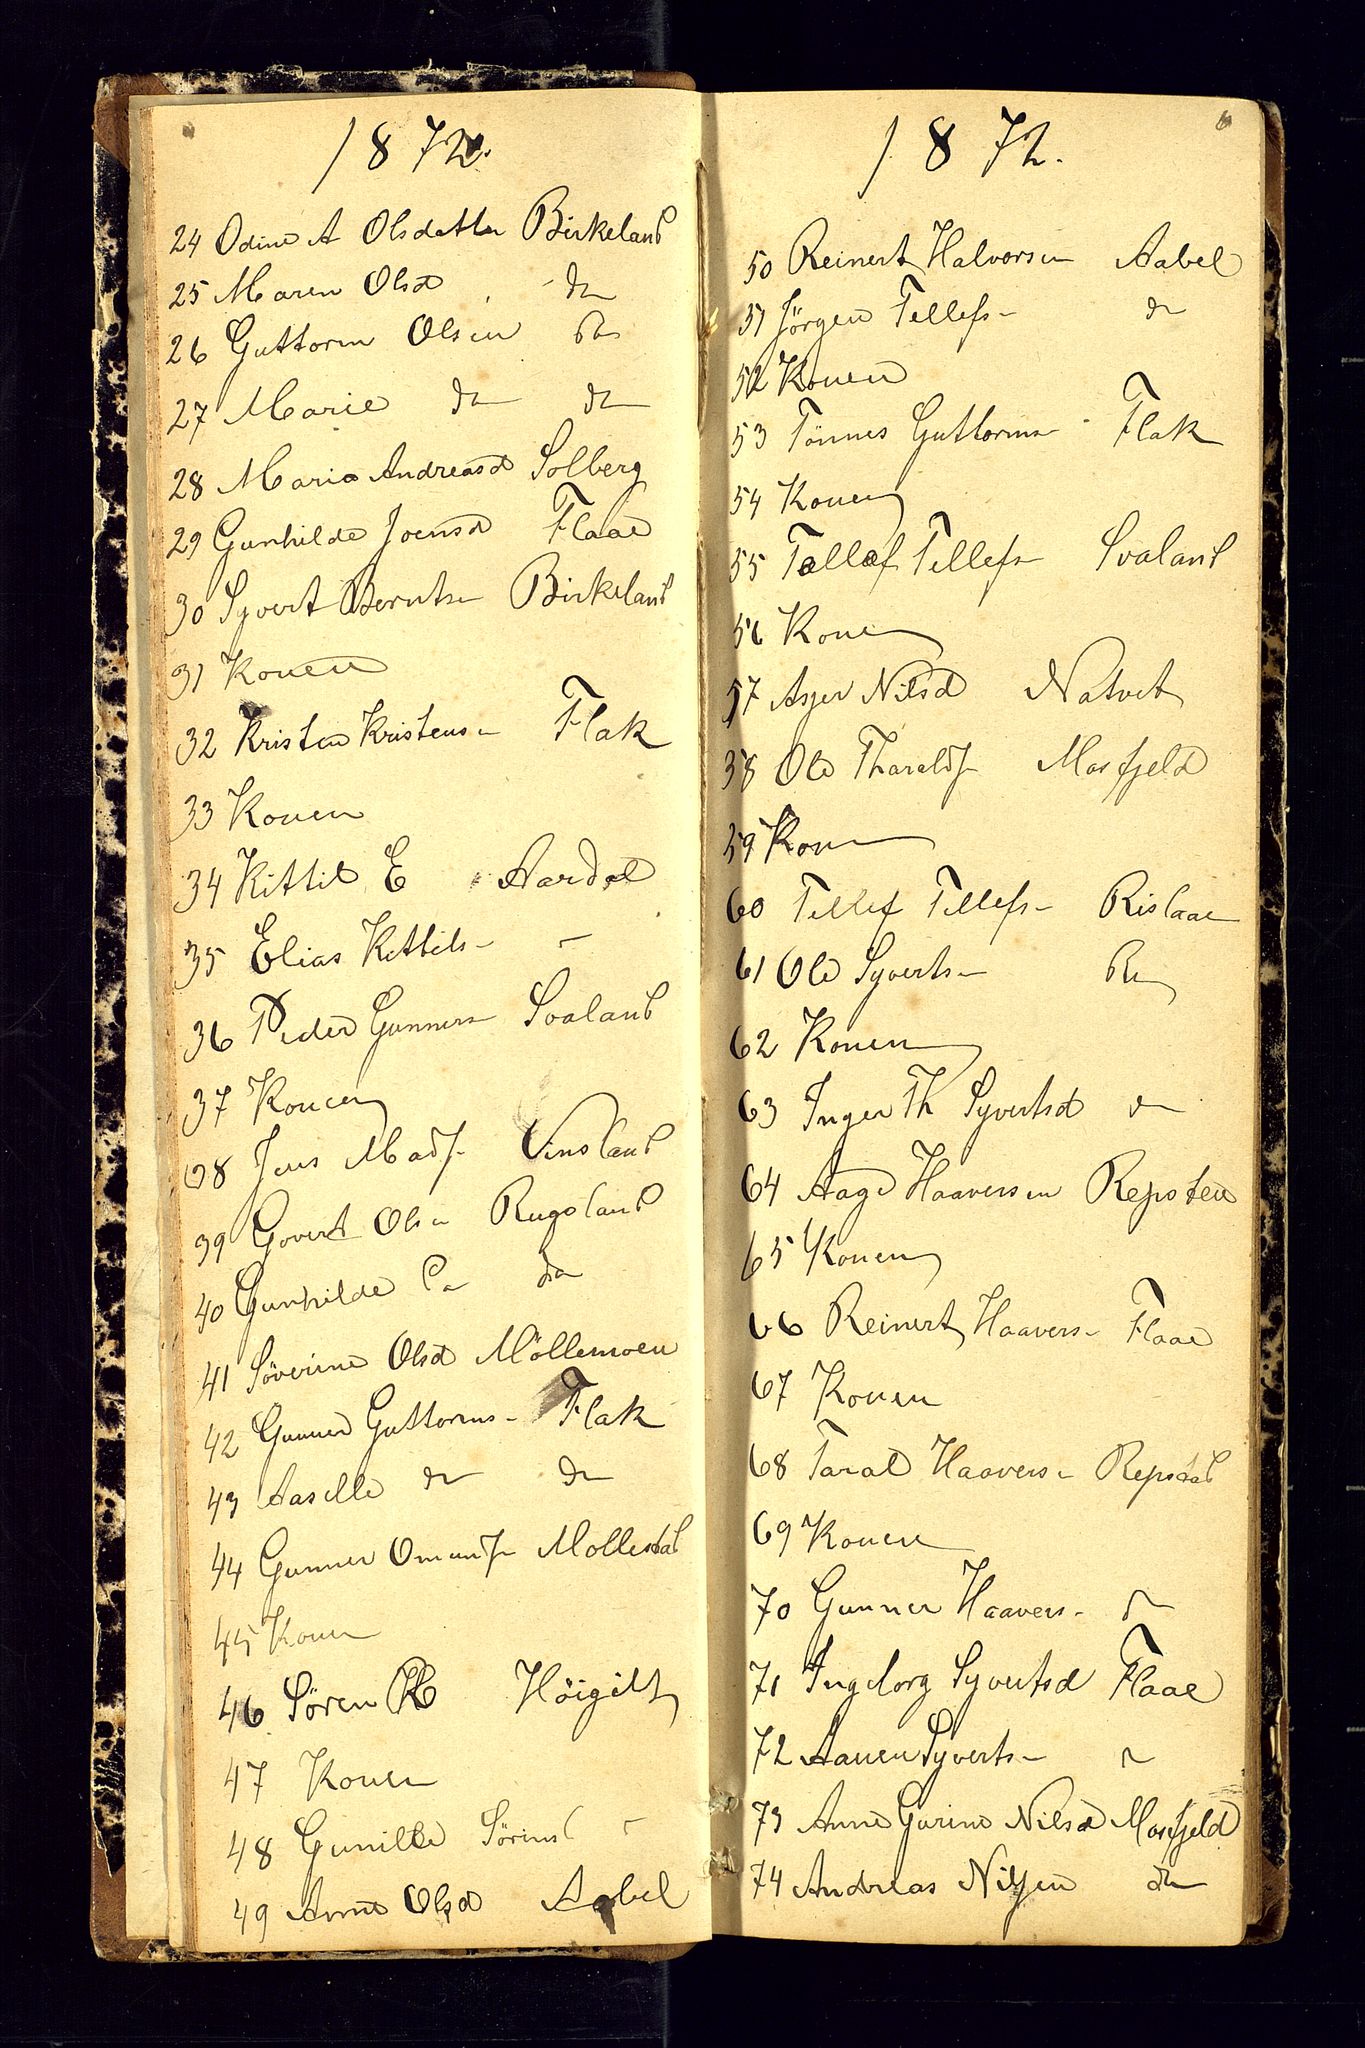 1872.
24 Odine A Olsdatter Birkeland
25 Maren Olsd do
26 Guttorm Olsen do
27 Marie do do
28 Maria Andreasd Solberg
29 Gunhilde Joensd Flaae
30 Syvert Berntsn Birkeland
31 Konen
32 Kristen Kristensn Flak
33 Konen
34 Kittil E Aardal
35 Elias Kittils- -
36 Peder Gunnersn Svaland
37 Konen
38 Jens Madsn Vinsland
39 Govert Olsn Rugsland
40 Gunhilde do
41 Söverine Olsd Möllemoen
42 Gunner Guttorms- Flak
43 Aasille do do
44 Gunner Omundsn Mollestad
45 Konen
46 Sören Höigilt
47 Konen
48 Gunilde Sörensd -
49 Anne Olsd Aabel
6
1872.
50 Reinert Halvorsen Aabel
51 Jörgen Tellefs- do
52 Konen
53 Tönnes Guttormsn Flak
54 Konen
55 Tellef Tellefsn Svaland
56 Konen
57 Asjer Nilsd Natvet
58 Ole Tharaldsn Mosfjeld
59 Konen
60 Tellef Tellefs- Rislaae
61 Ole Syverts- do
62 Konen
63 Inger Th Syvertsd do
64 Aage Haaversen Repsten
65 Konen
66 Reinert Haavers- Flaae
67 Konen
68 Taral Haaversn Repsdal
69 Konen
70 Gunner Haavers- do
71 Ingeborg Syvertsd Flaae
72 Aanen Syverts- do
73 Anne Gurine Nilsd Mosfjeld
74 Andreas Nilsen do